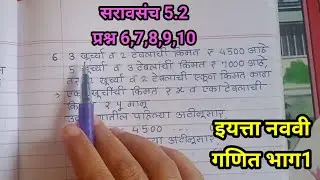 सरावसंच 5.2
प्रश्न 6,7,8,9,10
6 3 खुर्च्या व 2 टेबलाची किंमत ₹ 4500 आहे
5 खुर्च्या व 3 टेबलाची किंमत ₹ 7000 आहे,
तर 2 खुर्च्या व 2 टेबलाची एकूण किंमत काढा
एका खुर्चीची किंमत ₹ x व एका टेबलाची
₹ y मानू
पहिल्या अटीनुसार
4500
अटीनुसार
इयत्ता नववी
गणित भाग1